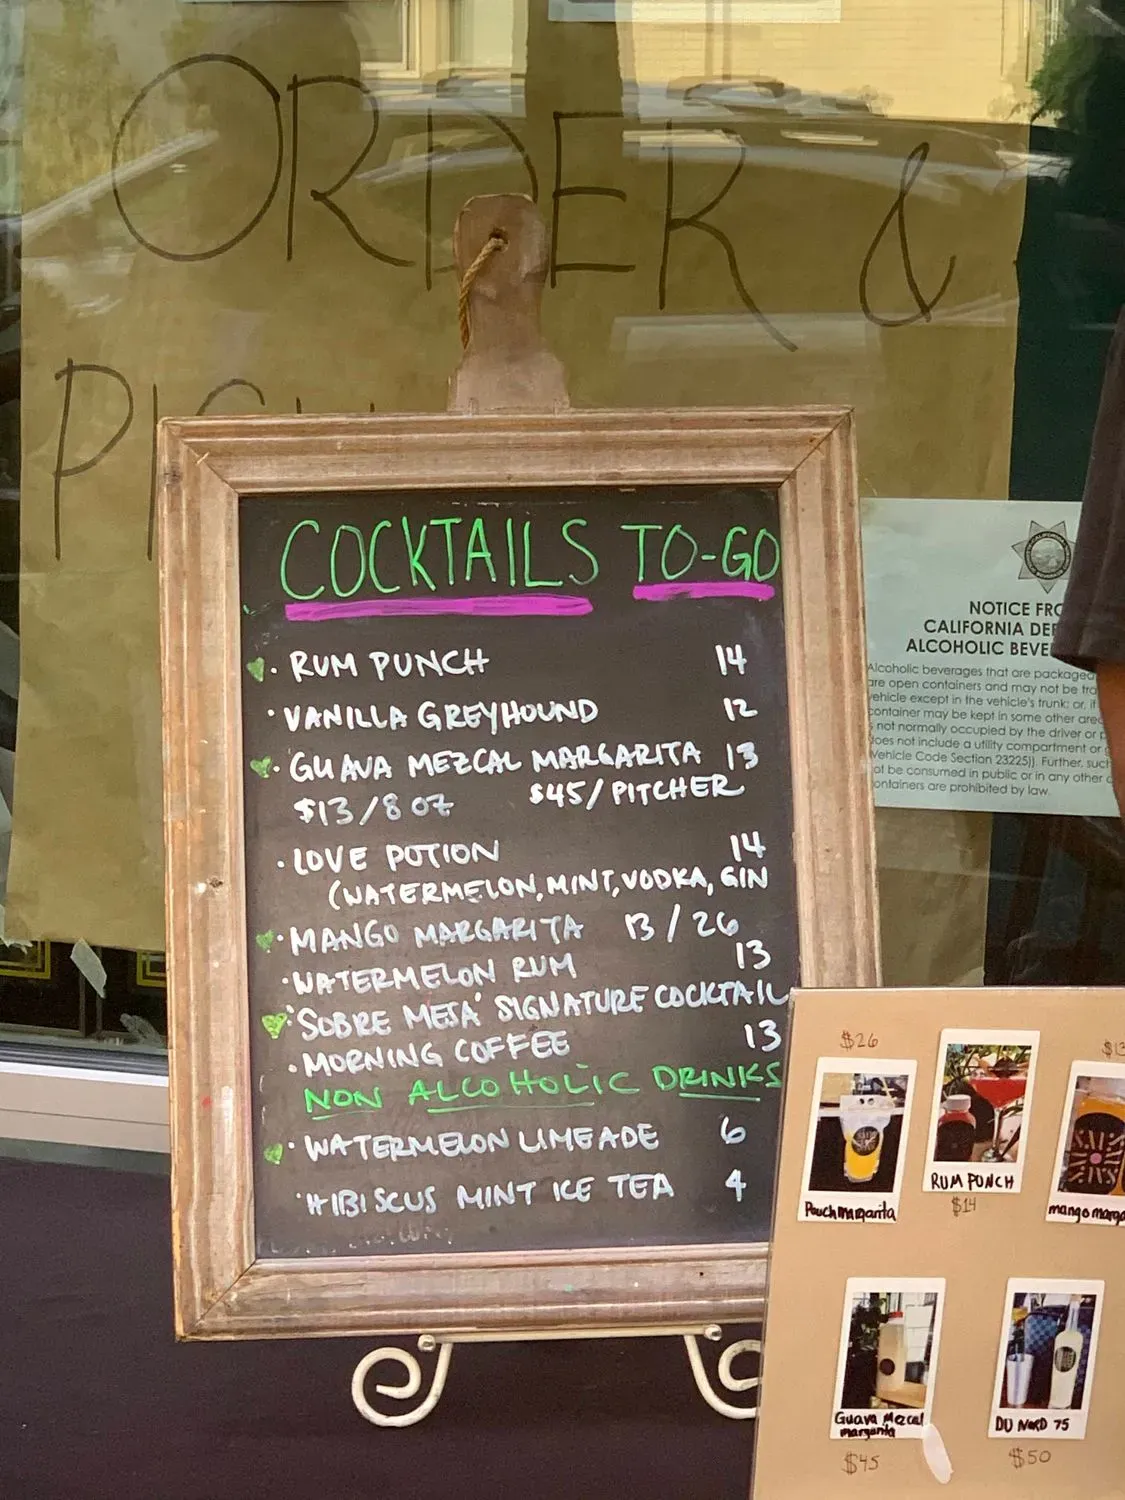 ORDER &
COCKTAILS TO-GO
· RUM PUNCH 14
· VANILLA GREYHOUND 12
· GUAVA MEZCAL MARGARITA 13
$13/8 OZ $45/PITCHER
· LOVE POTION 14
(WATERMELON, MINT, VODKA, GIN
· MANGO MARGARITA 13/26
· WATERMELON RUM 13
· "SOBRE MESA" SIGNATURE COCKTAIL
· MORNING COFFEE 13
NON ALCOHOLIC DRINKS
· WATERMELON LIMEADE 6
· HIBISCUS MINT ICE TEA 4
NOTICE
CALIFORNIA
ALCOHOLIC
Alcoholic beverages that are packaged
are open containers and may not be
vehicle except in the vehicle's trunk; or, if
container may be kept in some other area
not normally occupied by the driver or
does not include a utility compartment or
Vehicle Code Section 23225)). Further, such
not be consumed in public or in any other
containers are prohibited by law.
$26
Pouch margarita
RUM PUNCH
$14
$13
mango
Guava Mezcal
margarita
$45
DU NORD 75
$50